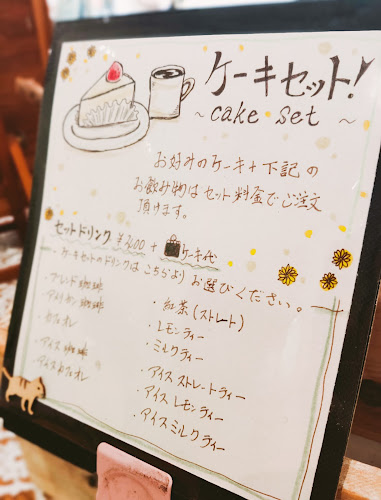 ケーキセット!
~ cake set ~
お好みのケーキ+下記の
お飲み物はセット料金でご注文
頂けます。
セットドリンク ¥400 + ケーキ代
・ケーキセットのドリンクはこちらよりお選びください。
・ブレンド珈琲
・アメリカン珈琲
・カフェオレ
・アイス珈琲
・アイスカフェオレ
・紅茶(ストレート)
・レモンティー
・ミルクティー
・アイスストレートティー
・アイスレモンティー
・アイスミルクティー